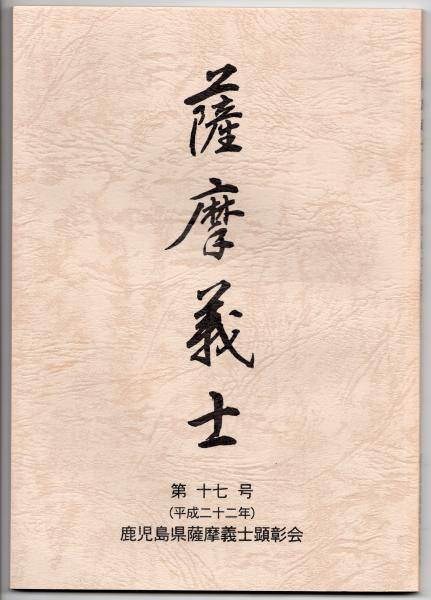 薩摩義士
第 十七 号
(平成二十二年)
鹿児島県薩摩義士顕彰会